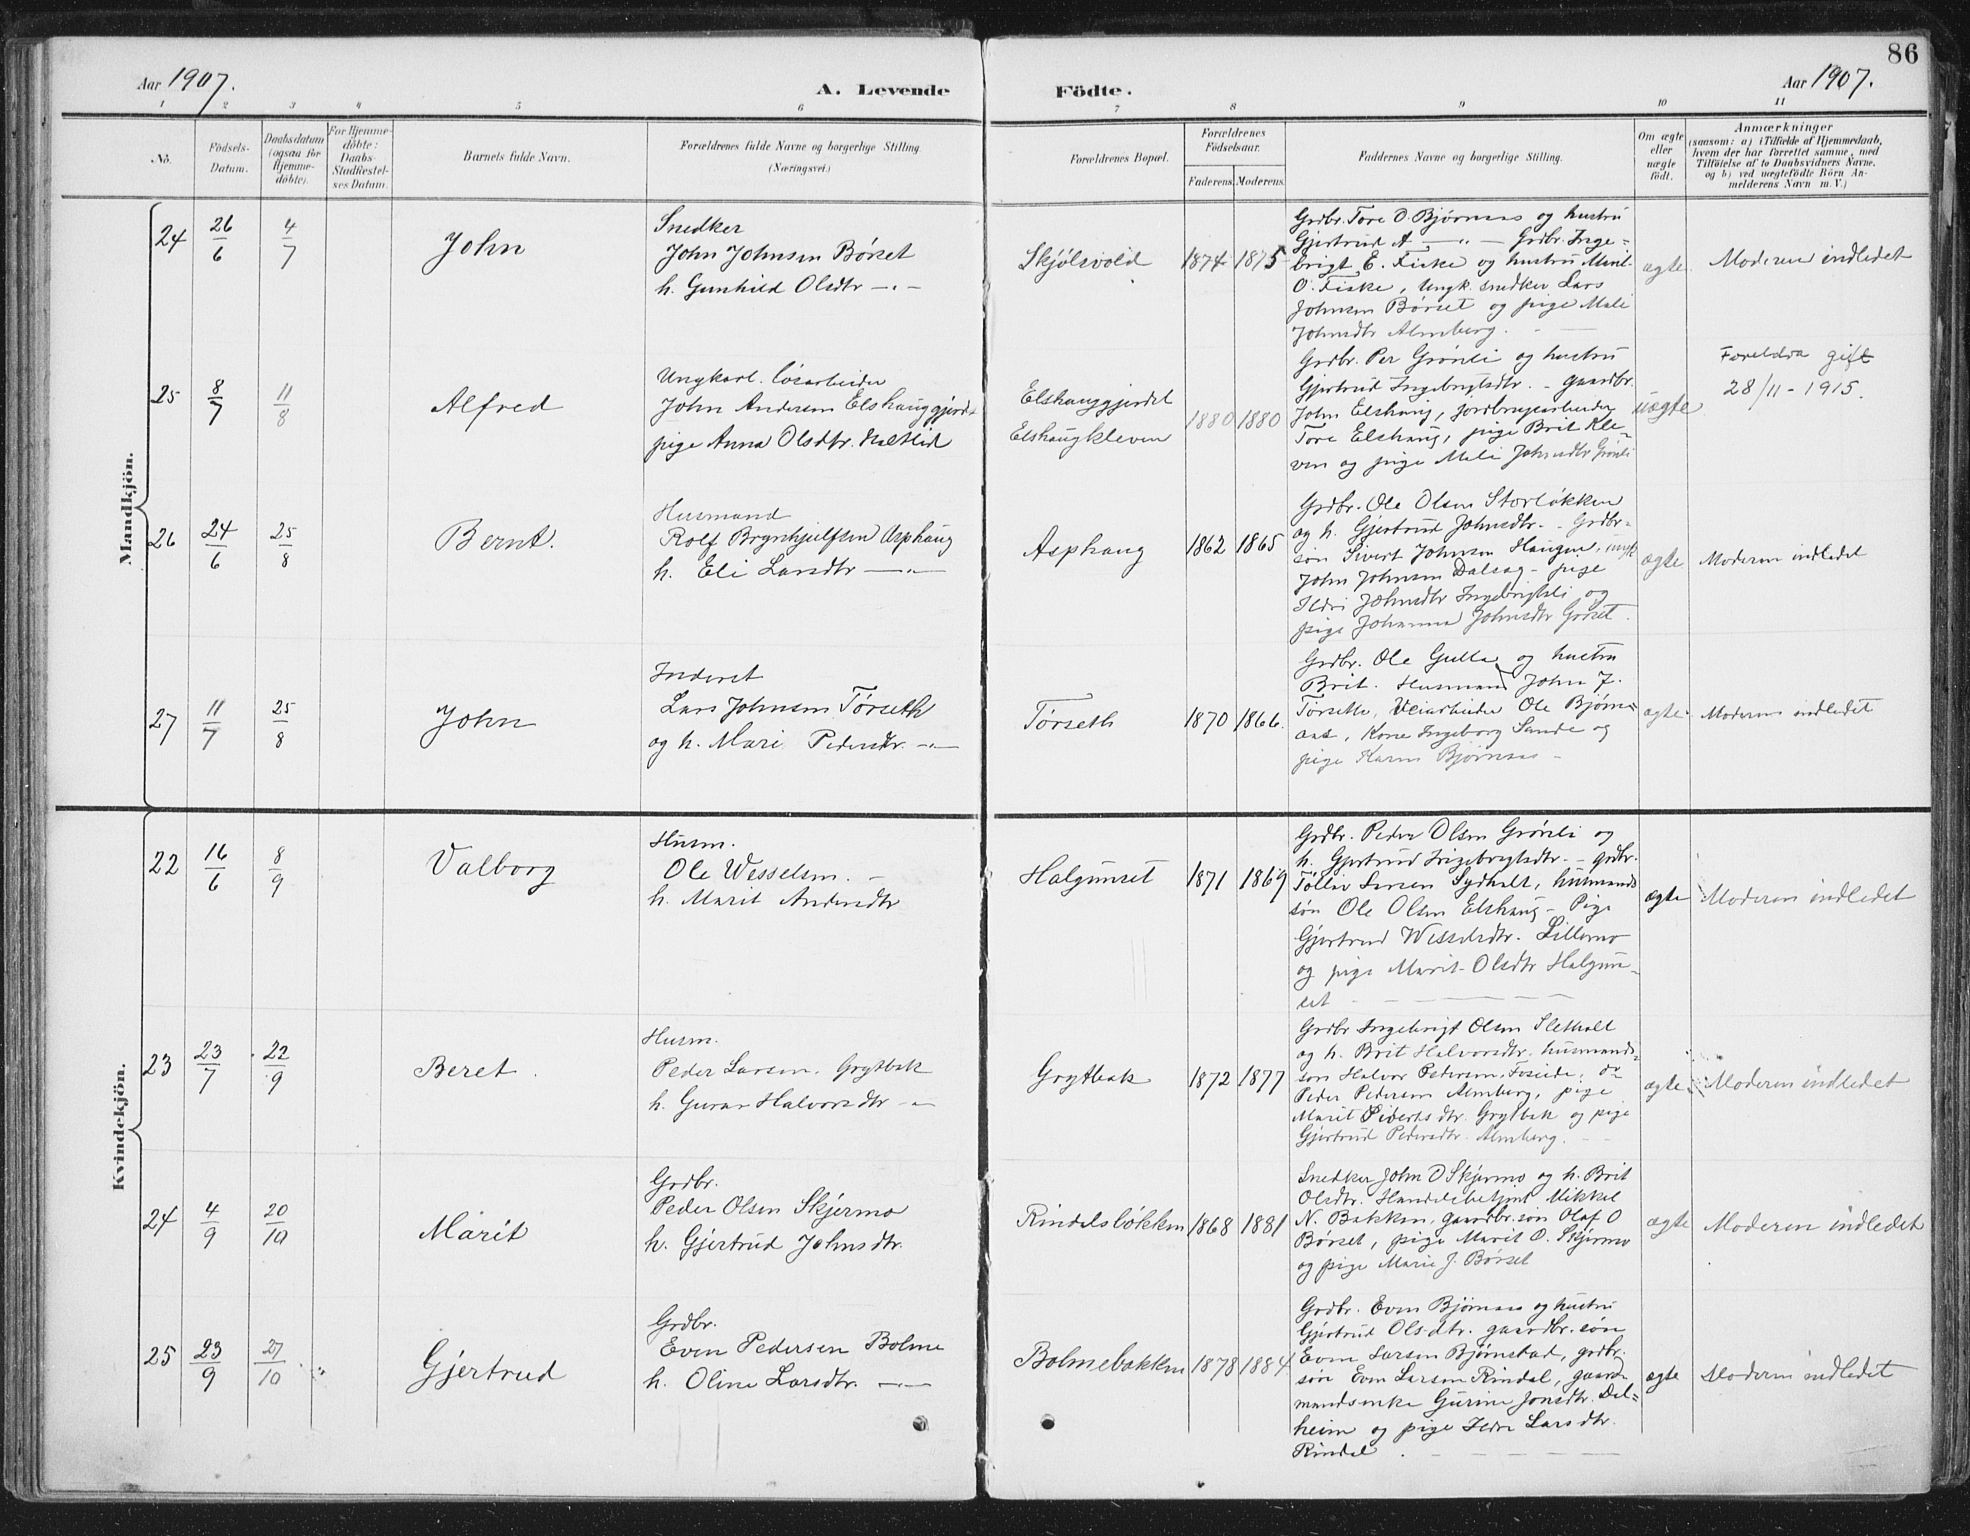 86
Aar 1907.
A. Levende Födte.
Aar 1907.
1 2 3 4 5 6 7 8 9 10 11
No.
Födsels-Datum.
Daabsdatum (ogsaa for Hjemme-döbte).
For Hjemme-döbte: Daabs-Stadfæstel-ses Datum.
Barnets fulde Navn.
Forældrenes fulde Navne og borgerlige Stilling.
(Næringsvei.)
Forældrenes Bopæl.
Forældrenes Födselsaar.
Faderens. Moderens.
Faddernes Navne og borgerlige Stilling.
Om ægte eller uægte födt.
Anmærkninger
(saasom: a) i Tilfælde af Hjemmedaab, hvem der har forrettet samme, med Tilföielse af to Daabsvidners Navne, og b) ved uægtefödte Börn An-melderens Navn m. V.)
Mandkjön.
24 26/6 4/7 John
Snedker
John Johnsen Börset
h. Gunhild Olsdtr -"-
Skjölsvold 1874 1875
Grdbr. Tore O Bjørnaas og hustru
Gjertrud A -"- Grdbr. Inge-
brigt E. Fiske og hustru Marit
O. Fiske, Ungk. snedker Lars
Johnsen Børset og pige Mali
Johnsdtr Almberg.
ægte Moderen indledet
25 8/7 11/8 Alfred
Ungkarl. løsarbeider
John Andersen Elshauggjerdet
pige Anna Olsdtr.
Elshauggjerdet
Elshaugkleven
1880 1880
Grdbr. Per Grönli og hustru
Gjertrud Ingebrigtsdtr. - gaardbr.
John Elshaug, jordbrugsarbeider
Tore Elshaug, pige Brit Kle-
ven og pige Mali Johnsdtr Grönli
uægte
Foreldra gift
28/11 - 1915.
26 24/6 25/8 Bernt.
Husmand
Rolf Brynhjulfsen Asphaug
h. Eli Larsdtr -"-
Asphaug 1862 1865
Grdbr. Ole Olsen Storløkken
og h. Gjertrud Johnsdtr. - Grdbr-
søn Sivert Johnsen Haugen, ungk
John Johnsen Dalsag - pige
Ildri Johnsdtr Ingebrigtsli og
pige Johanna Johnsdtr Gørset.
ægte Moderen indledet
27 11/7 25/8 John
Inderst
Lars Johnsen Tørseth
og h. Mari Pedersdtr. -"-
Tørseth 1870 1866.
Grdbr. Ole Gulla og hustru
Brit. Husmand John J.
Tørseth, Veiarbeider Ole Bjørn-
aas, Kone Ingeborg Sande og
pige Karen Bjørnaas -
ægte Moderen indledet
Kvindekjön.
22 16/6 8/9 Valborg
Husm.
Ole Wesselsen. -
h. Marit Andersdtr
Halgunset 1871 1869
Grdbr. Peder Olsen Grönli og
h. Gjertrud Ingebrigtsdtr. - grdbr.
Tollev Larsen Sydhalt, husmands
søn Ole Olsen Elshaug - Pige
Gjertrud Wesselsdtr. Lillemo
og pige Marit Olsdtr Halgun-
set
ægte Moderen indledet
23 23/7 22/9 Beret.
Husm.
Peder Larsen. Grytbak
h. Guran Halvorsdtr -"-
Grytbak 1872 1877
Grdbr Ingebrigt Olsen Sletholt
og h. Brit Halvorsdtr. husmands-
søn Halvor Pedersen Foseide, do
Peder Pedersen Almberg, pige
Marit Sivertsdtr. Grytbak og pige
Gjertrud Pedersdtr. Almberg.
ægte Moderen indledet
24 4/9 20/10 Marit
Grdbr.
Peder Olsen Skjermo
h. Gjertrud Johnsdtr.
Rindalsløkken 1868 1881
Snedker John O Skjermo og h. Brit
Olsdtr. Handelsbetjent Mikkel
N. Bakken, gaardbr.søn Olaf O
Børset, pige Marit O. Skjermo
og pige Marie J. Børset
ægte Moderen indledet
25 23/9 27/10 Gjertrud
Grdbr.
Even Pedersen Bolme
h. Oline Larsdtr. -"-
Bolmebakken 1878 1884
Grdbr. Even Bjørnaas og hustru
Gjertrud Olsdtr. gaardbr.søn
Even Larsen Bjørnstad, grdbr.
søn Even Larsen Rindal, gaard-
mandsenke Gurine Jonsdtr. Dal-
heim og pige Ildri Larsdtr.
Rindal.
ægte Moderen indledet